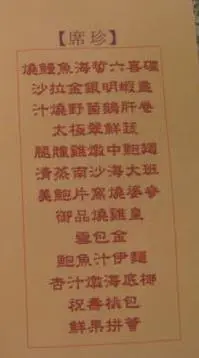 【席珍】
燒鰻魚海蜇六喜碟
沙拉金銀明蝦盞
汁燒野菌鵝肝卷
太極翠鮮蔬
腿雞燉中鮑
清蒸南沙海大班
美鮑片窩燒婆參
御品燒雞皇
雪包金
鮑魚汁伊麵
杏汁燉海底椰
祝壽桃包
鮮果拼